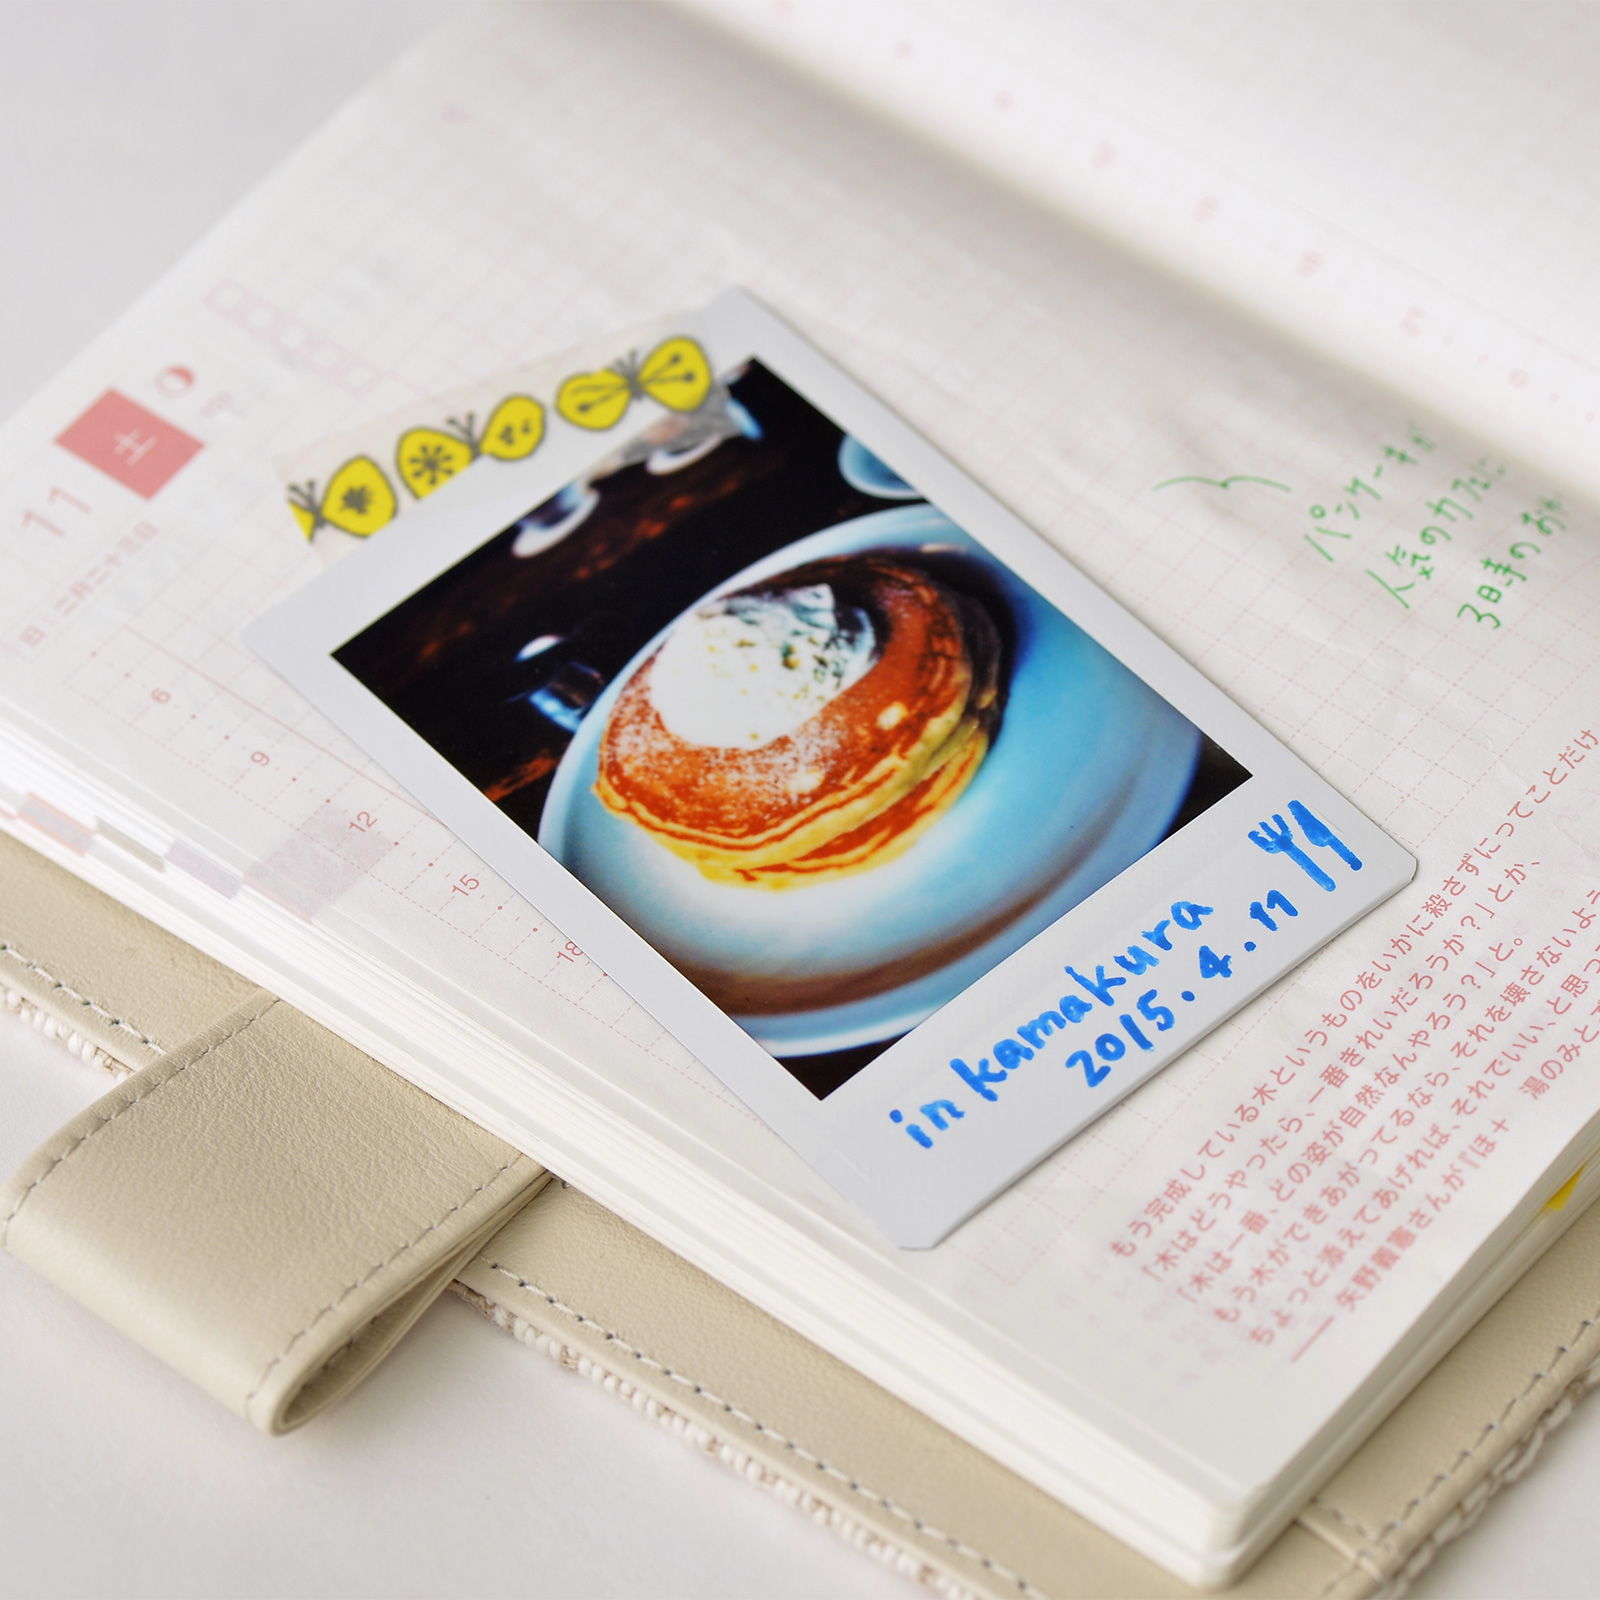 11
土
旧:二月二十三日
6
9
12
15
18
パンケーキが
人気のカフェに
3時のおや
in kamakura
2015.4.11
もう完成している木というものをいかに殺さずにってことだけ
「木はどうやったら、一番きれいだろうか?」とか、
「木は一番、どの姿が自然なんやろう?」と。
もう木ができあがってるなら、それを壊さないよう
ちょっと添えてあげれば、それでいい、と思っ
── 矢野義憲さんが『ほ+ 湯のみと